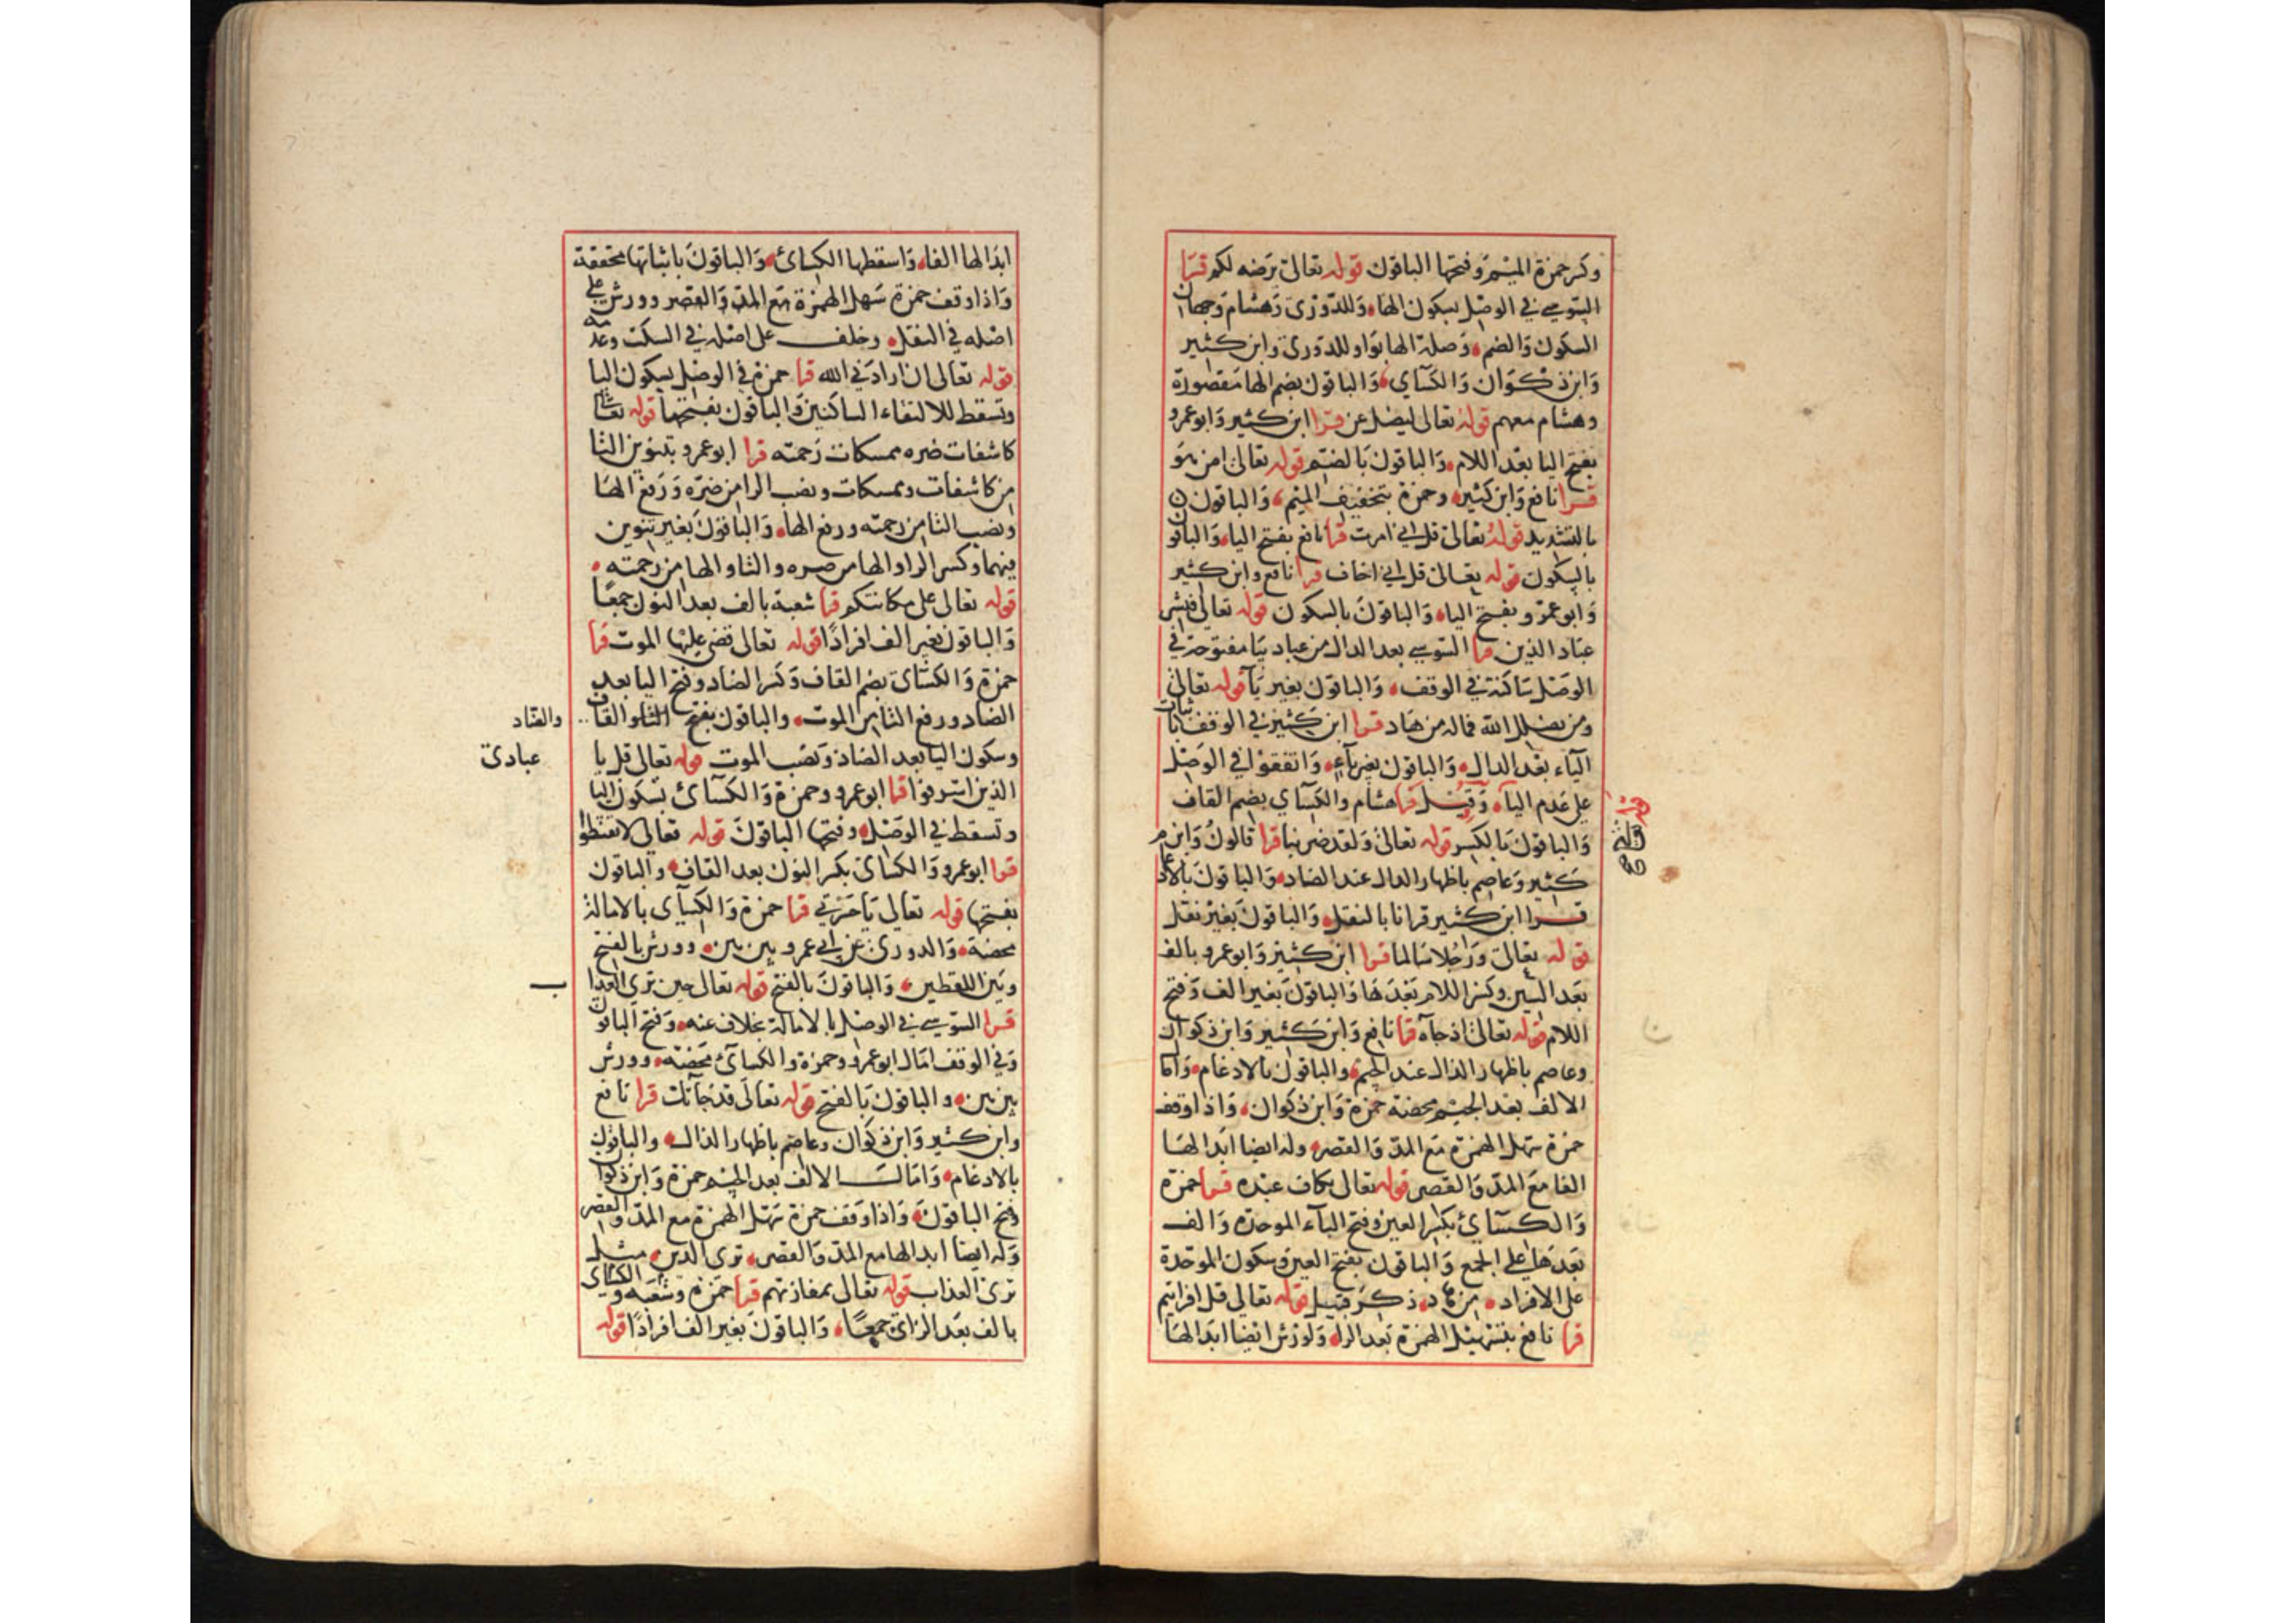 وكسر حمزة الميم وفتحها الباقون قوله تعالى يرضه لكم قرا
السوسي في الوصل بسكون الهاء وللدوري وهشام وجهان
السكون والضم وصلة الها بواو للدوري وابن كثير
وابن ذكوان والكساي والباقون بضم الها مقصورة
وهشام معهم قوله تعالى ليضل عن قرا ابن كثير وابو عمرو
بفتح اليا بعد اللام والباقون بالضم قوله تعالى امن هو
قرا نافع وابن كثير وحمزة بتخفيف الميم والباقون
بالتشديد قوله تعالى قل اني امرت قرا نافع بفتح الياء والباقون
بالسكون قوله تعالى قل اني اخاف قرا نافع وابن كثير
وابو عمرو بفتح الياء والباقون بالسكون قوله تعالى فبشر
عباد الذين قرا السوسي بعد الدال من عباد بيا مفتوحة في
الوصل ساكنة في الوقف والباقون بغير يآ قوله تعالى
ومن يضلل الله فماله من هاد قرا ابن كثير في الوقف باثبات
اليآء بعد الدال والباقون بغير يآء واتفقوا في الوصل
على عدم اليآء وقيل قرا هشام والكسآي بضم القاف
والباقون بالكسر قوله تعالى ولقد ضربنا قرا قالون وابن
كثير وعاصم باظهار الدال عند الضاد والباقون بالادغام
قرا ابن كثير قرانا بالنقل والباقون بغير نقل
قوله تعالى ورجلا سالما قرا ابن كثير وابو عمرو بالف
بعد السين وكسر اللام بعدها والباقون بغير الف وفتح
اللام قوله تعالى اذ جآه قرا نافع وابن كثير وابن ذكوان
وعاصم باظهار الذال عند الجيم والباقون بالادغام واما
الالف بعد الجيم محضة حمزة وابن ذكوان واذا وقف
حمزة سهل الهمزة مع المد والقصر وله ايضا ابدالها
الفا مع المد والقصر قوله تعالى بكاف عبده قرا حمزة
والكسآئ بكسر العين وفتح البآء الموحدة والف
بعدها على الجمع والباقون بفتح العين وسكون الموحدة
على الافراد من هاد ذكر قبيل قوله تعالى قل افرايتم
قرا نافع بتسهيل الهمزة بعد الراء ولورش ايضا ابدالها
ابدالها الفاء واسقطها الكسائ والباقون باثباتها محققة
واذا وقف حمزة سهل الهمزة مع المد والقصر وورش على
اصله في النقل وخلف على اصله في السكت وعدمه
قوله تعالى ان ارادني الله قرا حمزة في الوصل بسكون اليا
وتسقط للالتقاء الساكنين والباقون بفتحها قوله تعالى
كاشفات ضره ممسكات رحمته قرا ابو عمرو بتنوين التا
من كاشفات وممسكات ونصب الرا من ضره ورفع الها
ونصب التا من رحمته ورفع الهاء والباقون بغير تنوين
فيهما وكسر الرا والها من ضره والتا والها من رحمته
قوله تعالى على مكانتكم قرا شعبة بالف بعد النون جمعًا
والباقون بغير الف افرادًا قوله تعالى قضى عليها الموت قرا
حمزة والكسائ بضم القاف وكسر الضاد وفتح اليا بعد
الضاد ورفع التا من الموت والباقون بفتح القاف
والضاد
وسكون اليا بعد الضاد ونصب الموت قوله تعالى قل يا
عبادي
الذين اسرفوا قرا ابو عمرو وحمزة والكسآئ بسكون اليا
وتسقط في الوصل وفتحها الباقون قوله تعالى لا تقنطوا
قرا ابو عمرو والكسائ بكسر النون بعد القاف والباقون
بفتحها قوله تعالى يا حسرتي قرا حمزة والكسآى بالامالة
محضة والدوري عن ابي عمرو بين بين وورش بالفتح
وبين اللفظين والباقون بالفتح قوله تعالى حين ترى العذا
ب
قرا السوسي في الوصل بالامالة بخلاف عنه وفتح الباقون
وفي الوقف امال ابو عمرو وحمزة والكسآئ محضة وورش
بين بين والباقون بالفتح قوله تعالى قد جآتك قرا نافع
وابن كثير وابن ذكوان وعاصم باظهار الدال والباقون
بالادغام وامالـ الالف بعد الجيم حمزة وابن ذكوا
وفتح الباقون واذا وقف حمزة سهل الهمزة مع المد والقصر
وله ايضا ابدالها مع المد والقصر ترى الذين مثل
ترى العذاب قوله تعالى بمفازتهم قرا حمزة وشعبه والكسائ
بالف بعد الزاي جمعًا والباقون بغير الف افرادًا قوله